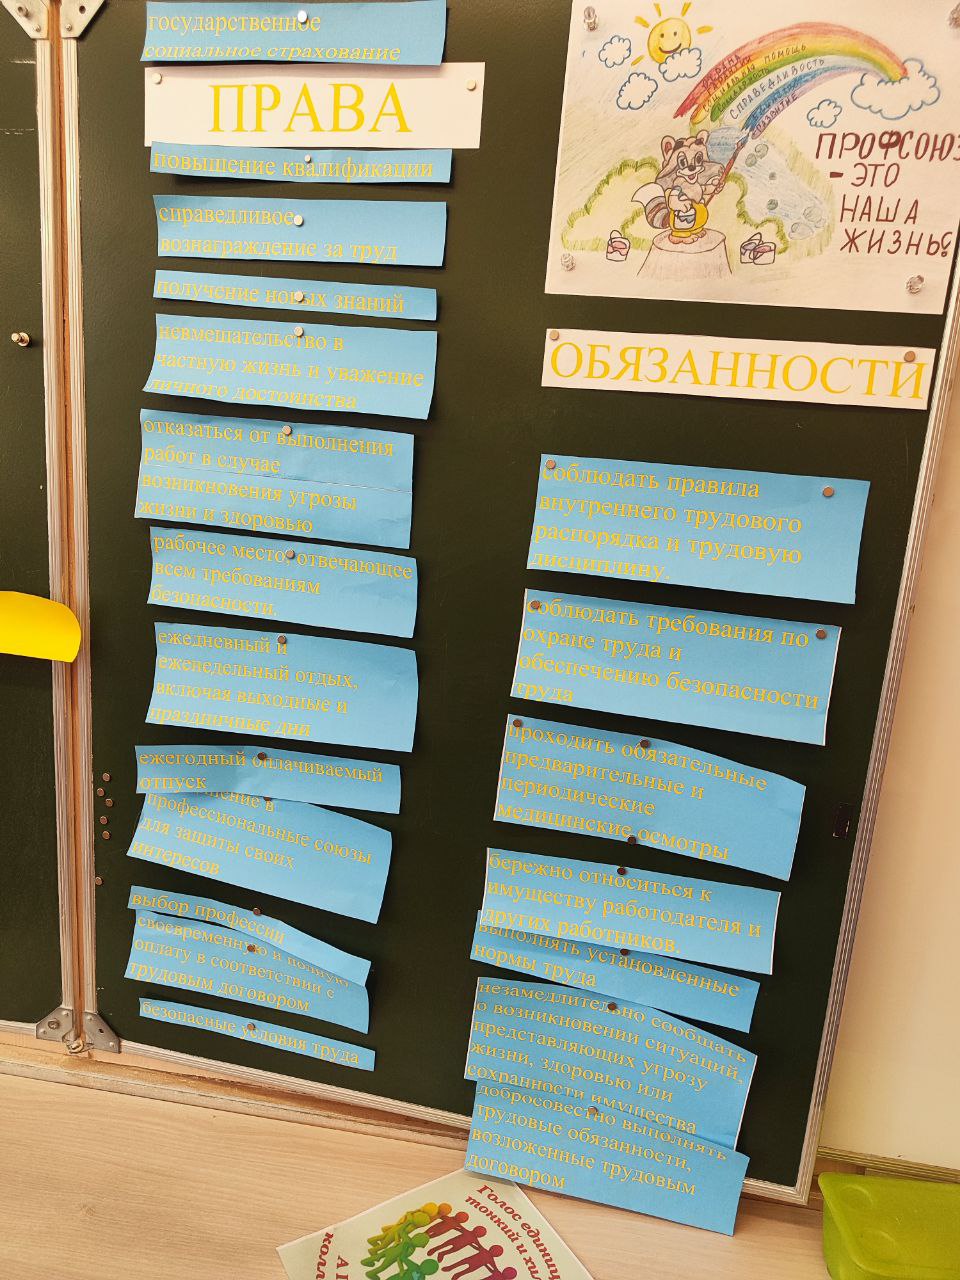 государственное
социальное страхование
ПРАВА
повышение квалификации
справедливое
вознаграждение за труд
получение новых знаний
невмешательство в
частную жизнь и уважение
личного достоинства
отказаться от выполнения
работ в случае
возникновения угрозы
жизни и здоровью
рабочее место, отвечающее
всем требованиям
безопасности.
ежедневный и
еженедельный отдых,
включая выходные и
праздничные дни
ежегодный оплачиваемый
отпуск
в
профессиональные союзы
для защиты своих
интересов
выбор профессии
своевременную и полную
оплату в соответствии с
трудовым договором
безопасные условия труда
ОХРАНА
ПОМОЩЬ
СПРАВЕДЛИВОСТЬ
РАЗВИТИЕ
ПРОФСОЮЗ
- ЭТО
НАША
ЖИЗНЬ!
ОБЯЗАННОСТИ
соблюдать правила
внутреннего трудового
распорядка и трудовую
дисциплину.
соблюдать требования по
охране труда и
обеспечению безопасности
труда
проходить обязательные
предварительные и
периодические
медицинские осмотры
бережно относиться к
имуществу работодателя и
других работников.
выполнять установленные
нормы труда
незамедлительно сообщать
о возникновении ситуаций,
представляющих угрозу
жизни, здоровью или
сохранности имущества
добросовестно выполнять
трудовые обязанности,
возложенные трудовым
договором
Голос единиц
тонкий и хил